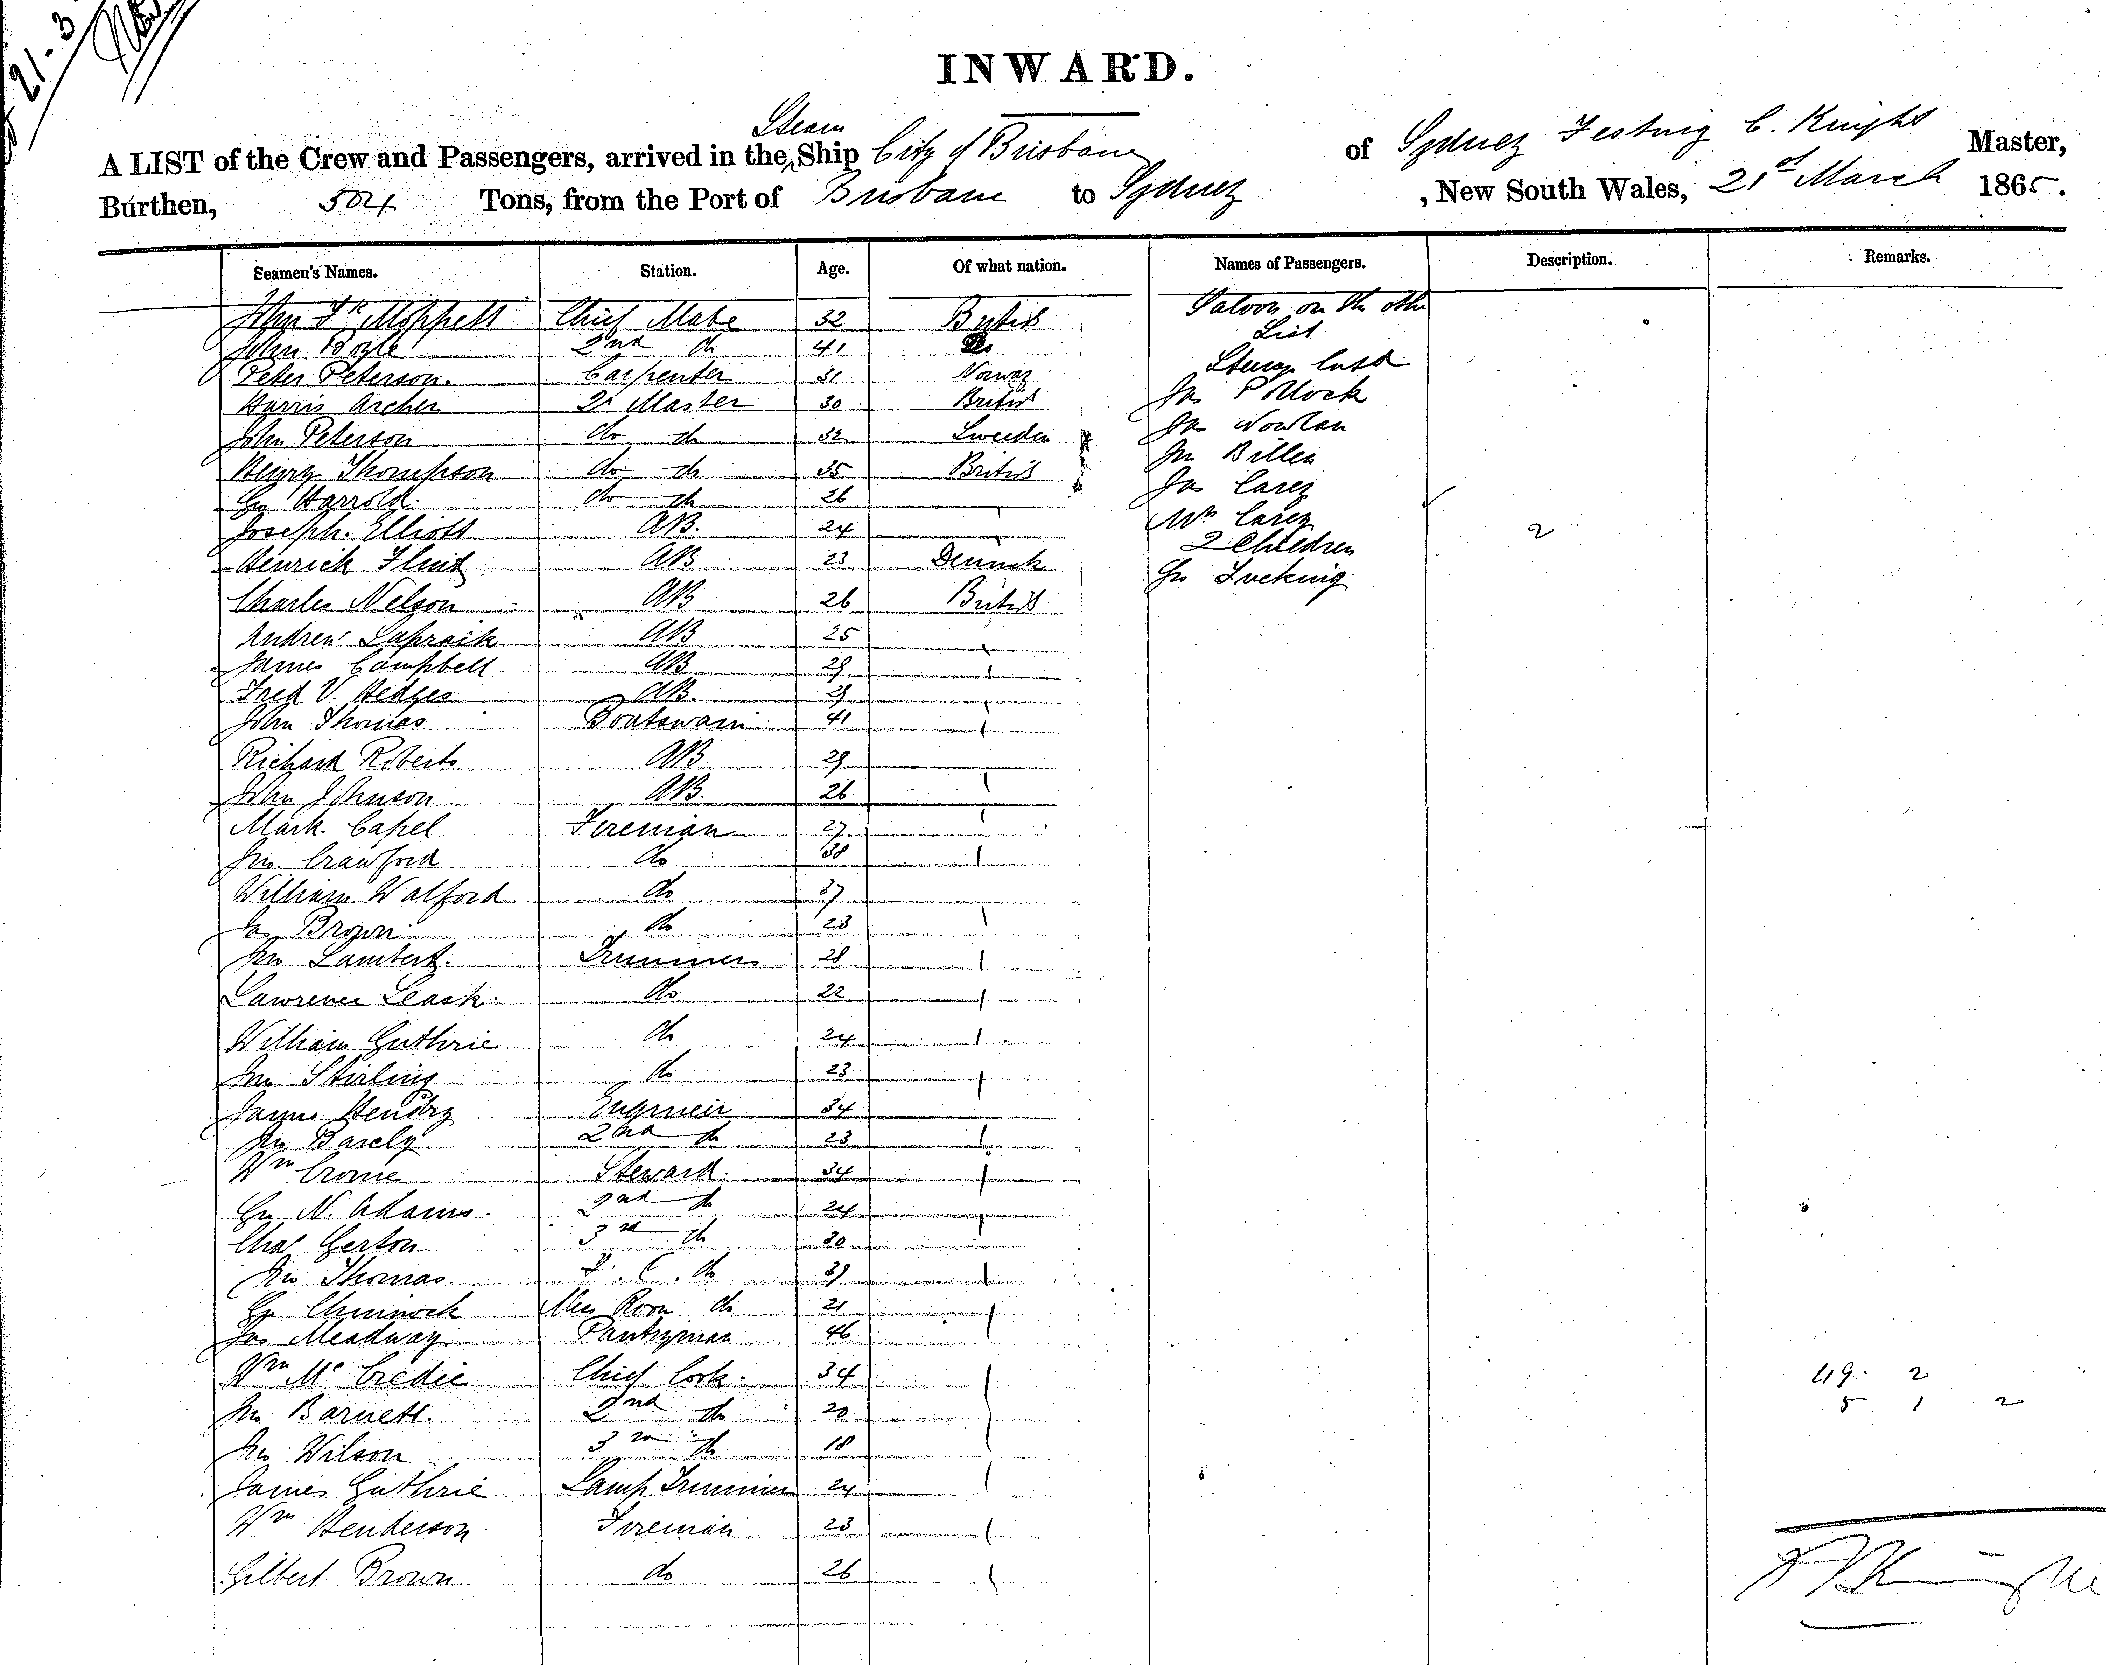 21-3
INWARD.
Steam
A LIST of the Crew and Passengers, arrived in the Ship City of Brisbane of Sydney Festing C. Knight Master,
Burthen, 504 Tons, from the Port of Brisbane to Sydney , New South Wales, 21st March 1865.
Seamen's Names. Station. Age. Of what nation. Names of Passengers. Description. Remarks.
John Fk Moppett Chief Mate 32 British Saloon on the other
List
John Boyle 2nd do 41 Do
Peter Peterson. Carpenter 31 Norway
Harris Archer 2r Master 30 British Jas Pollock
John Peterson do do 32 Sweden Jas Nowlan
Henry Thompson do do 35 British Jno Billen
Geo Harrold do do 26 Jas Carey
Joseph Elliott AB. 24 Mrs Carey
2 Children 2
Henrich Flint AB 23 Denmk Geo Lucking
Charles Nelson AB 26 British
Andrew Lapraik AB 25
James Campbell AB 29
Fred V. Hedges AB. 29
John Thomas Boatswain 41
Richard Roberts AB 29
John Johnson AB. 26
Mark Capel Fireman 27
Jno Crawford do 38
William Walford do 37
Jas Brown do 23
Jno Lambert. Trimmers 28
Lawrence Leask do 22
William Guthrie do 24
Jno Stirling do 23
James Hendry Engineer 34
Jno Barely 2nd do 23
Wm Crome Steward 34
Geo N. Adams. 2nd do 24
Chas Gerton 3rd do 30
Jno Thomas. do 39
Geo Chinnock Mess Room do 21
Jas Meadway Pantryman 46
Wm McCredie Chief Cook. 34 49 2
Jno Barnett. 2nd do 20 5 1 2
Jno Wilson 3rd do 18
James Guthrie Lamp Trimmer 24
Wm Henderson Fireman 23
Gilbert Brown do 26